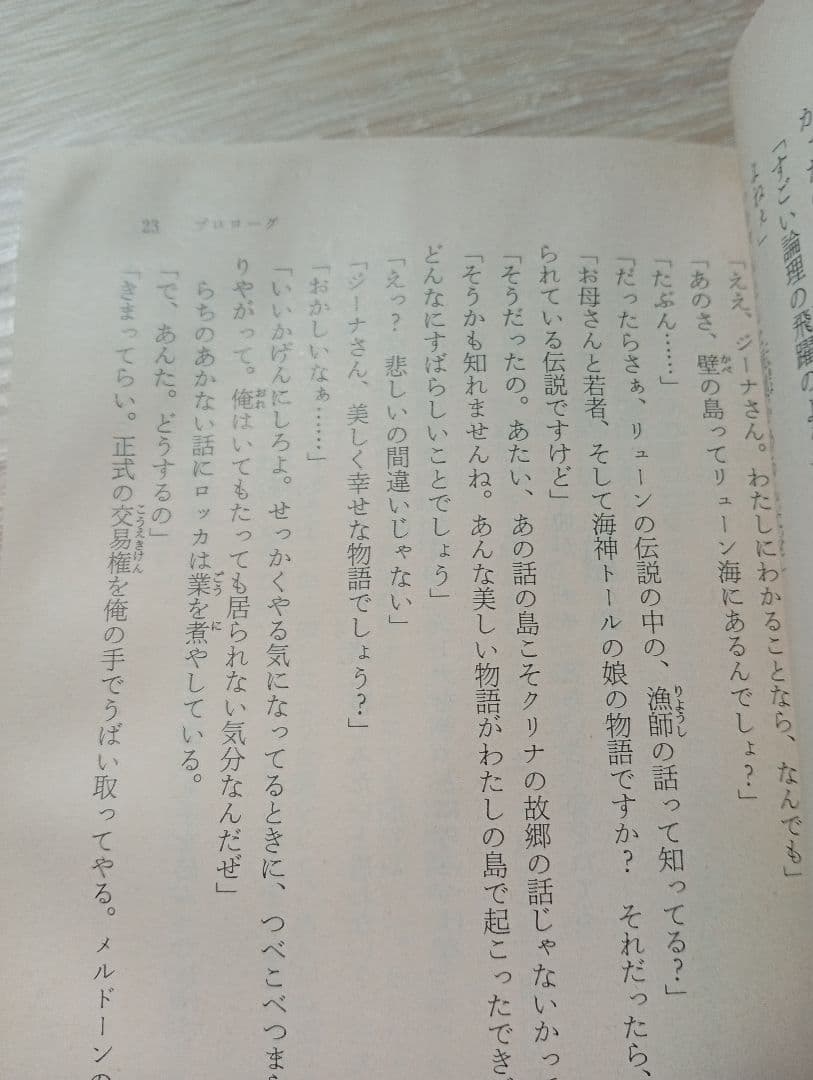 「すごい論理の飛躍の
「ええ、ジーナさん。わたしにわかることなら、なんでも」
「あのさ、壁の島ってリューン海にあるんでしょ？」
「たぶん……」
「だったらさぁ、リューンの伝説の中の、漁師の話って知ってる？」
「お母さんと若者、そして海神トールの娘の物語ですか？　それだったら、
られている伝説ですけど」
「そうだったの。あたい、あの話の島こそクリナの故郷の話じゃないかって
「そうかも知れませんね。あんな美しい物語がわたしの島で起こったでき
どんなにすばらしいことでしょう」
「えっ？　悲しいの間違いじゃない」
「ジーナさん、美しく幸せな物語でしょう？」
「おかしいなぁ……」
「いいかげんにしろよ。せっかくやる気になってるときに、つべこべつま
りやがって。俺はいてもたっても居られない気分なんだぜ」
らちのあかない話にロッカは業を煮やしている。
「で、あんた。どうするの」
「きまってらい。正式の交易権を俺の手でうばい取ってやる。メルドーンの
23 プロローグ